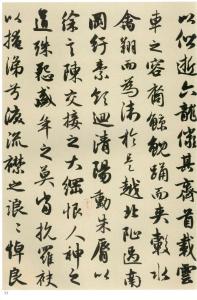 以偕逝六龍儼其齊首載雲
車之容裔鯨鯢踴而夾轂水
禽翔而為衛於是越北沚過南
岡紆素領迴清陽動朱脣以
徐言陳交接之大綱恨人神之
道殊怨盛年之莫當抗羅袂
以掩涕兮淚流襟之浪浪悼良